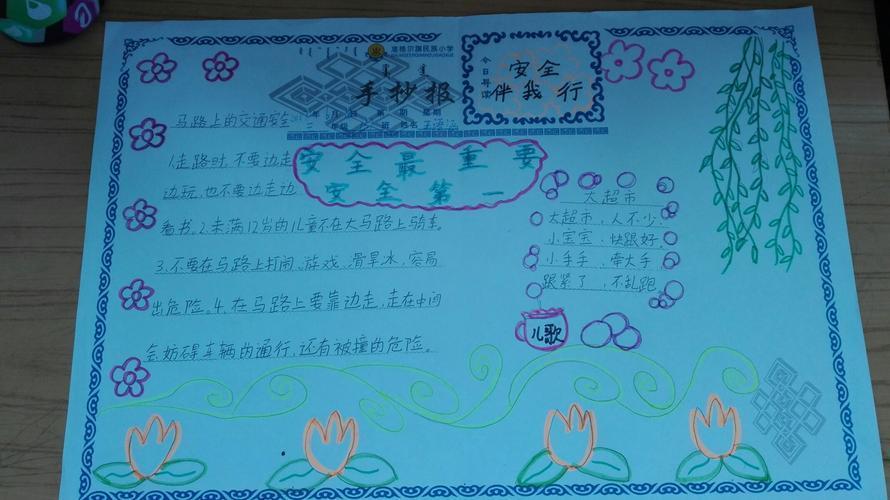 准格尔旗民族小学
手抄报
今日导读
安全
伴我行
安全最重要
安全第一
马路上的交通安全
1.走路时,不要边走
边玩,也不要边走边
看书。2.未满12岁的儿童不在大马路上骑车。
3.不要在马路上打闹、游戏、滑旱冰,容易
出危险。4.在马路上要靠边走,走在中间
会妨碍车辆的通行,还有被撞的危险。
大超市
大超市,人不少,
小宝宝,快跟好。
小手手,牵大手,
跟紧了,不乱跑。
儿歌